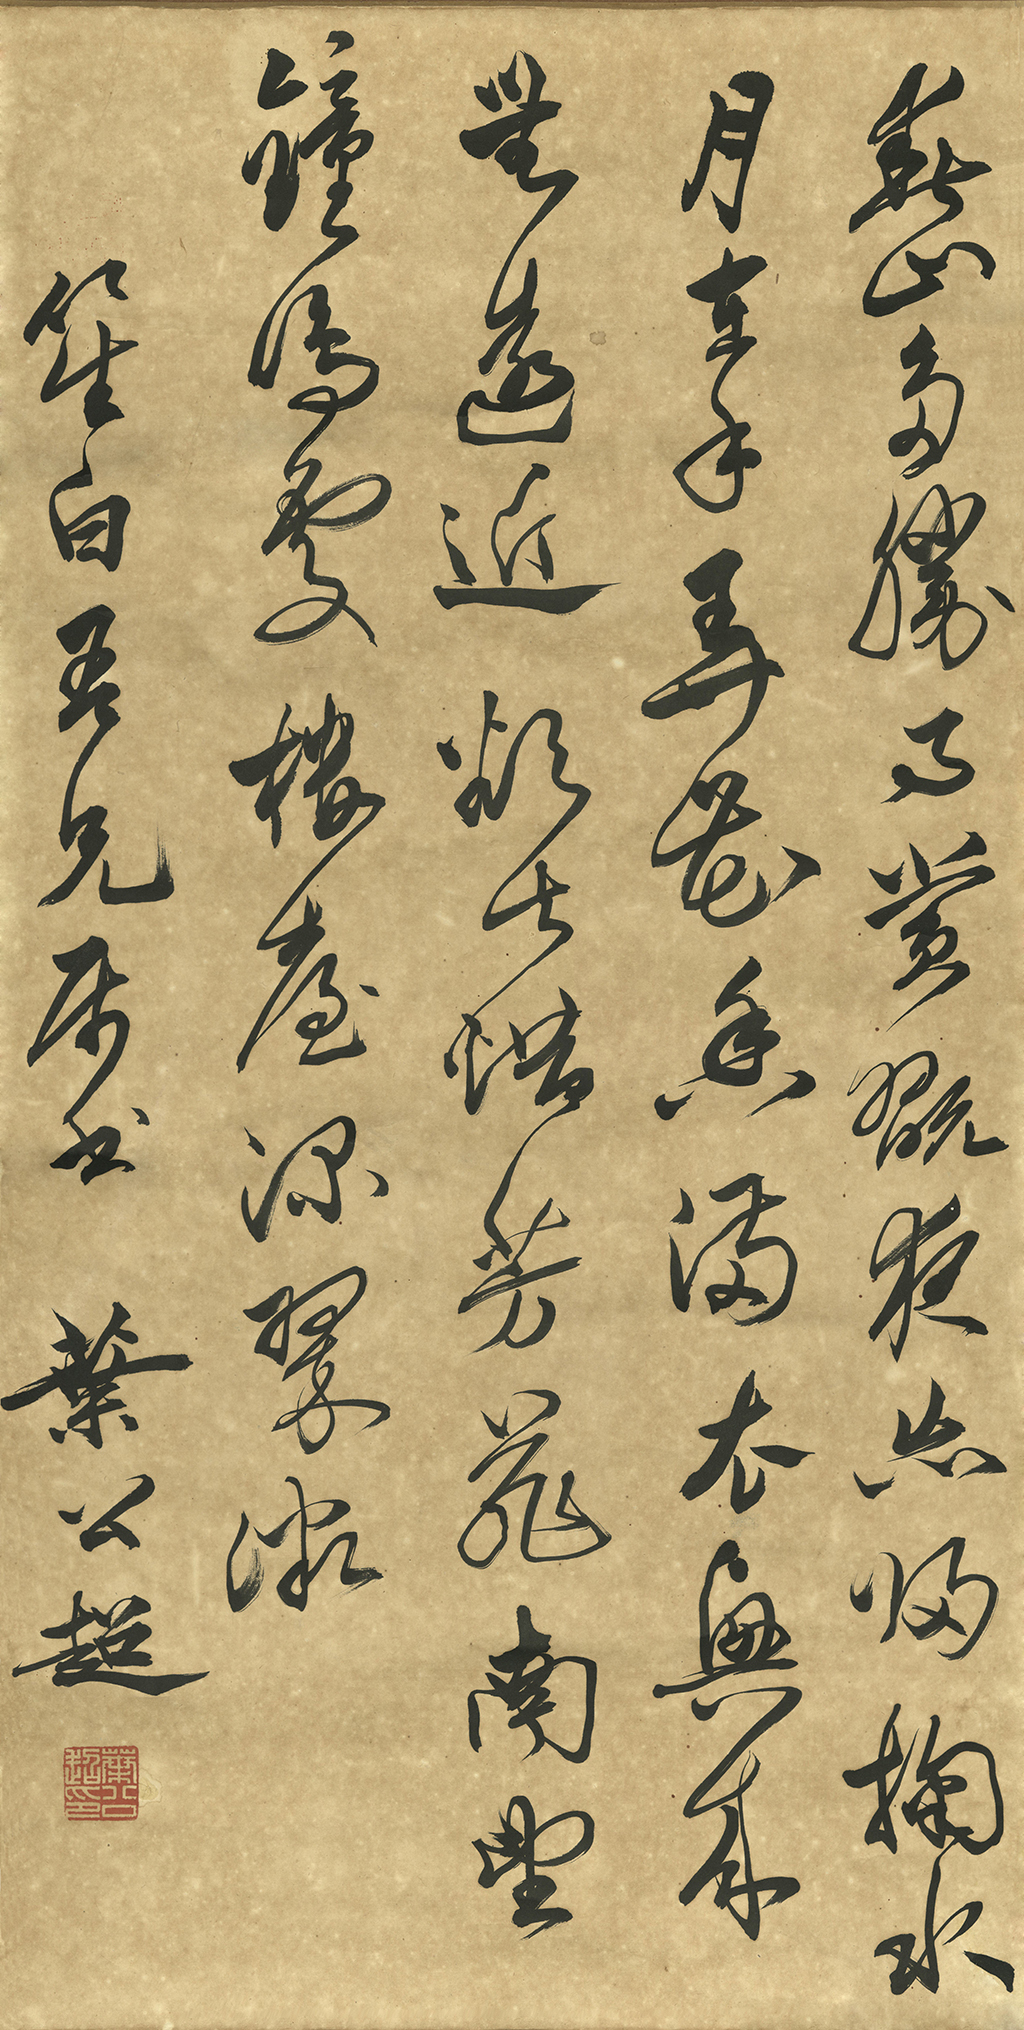 春山多勝事賞翫夜忘歸掬水
月在手弄花香滿衣興來
無遠近欲去惜芳菲南望
鐘鳴處樓臺深翠微
笙白吾兄屬書 葉公超
葉公超印